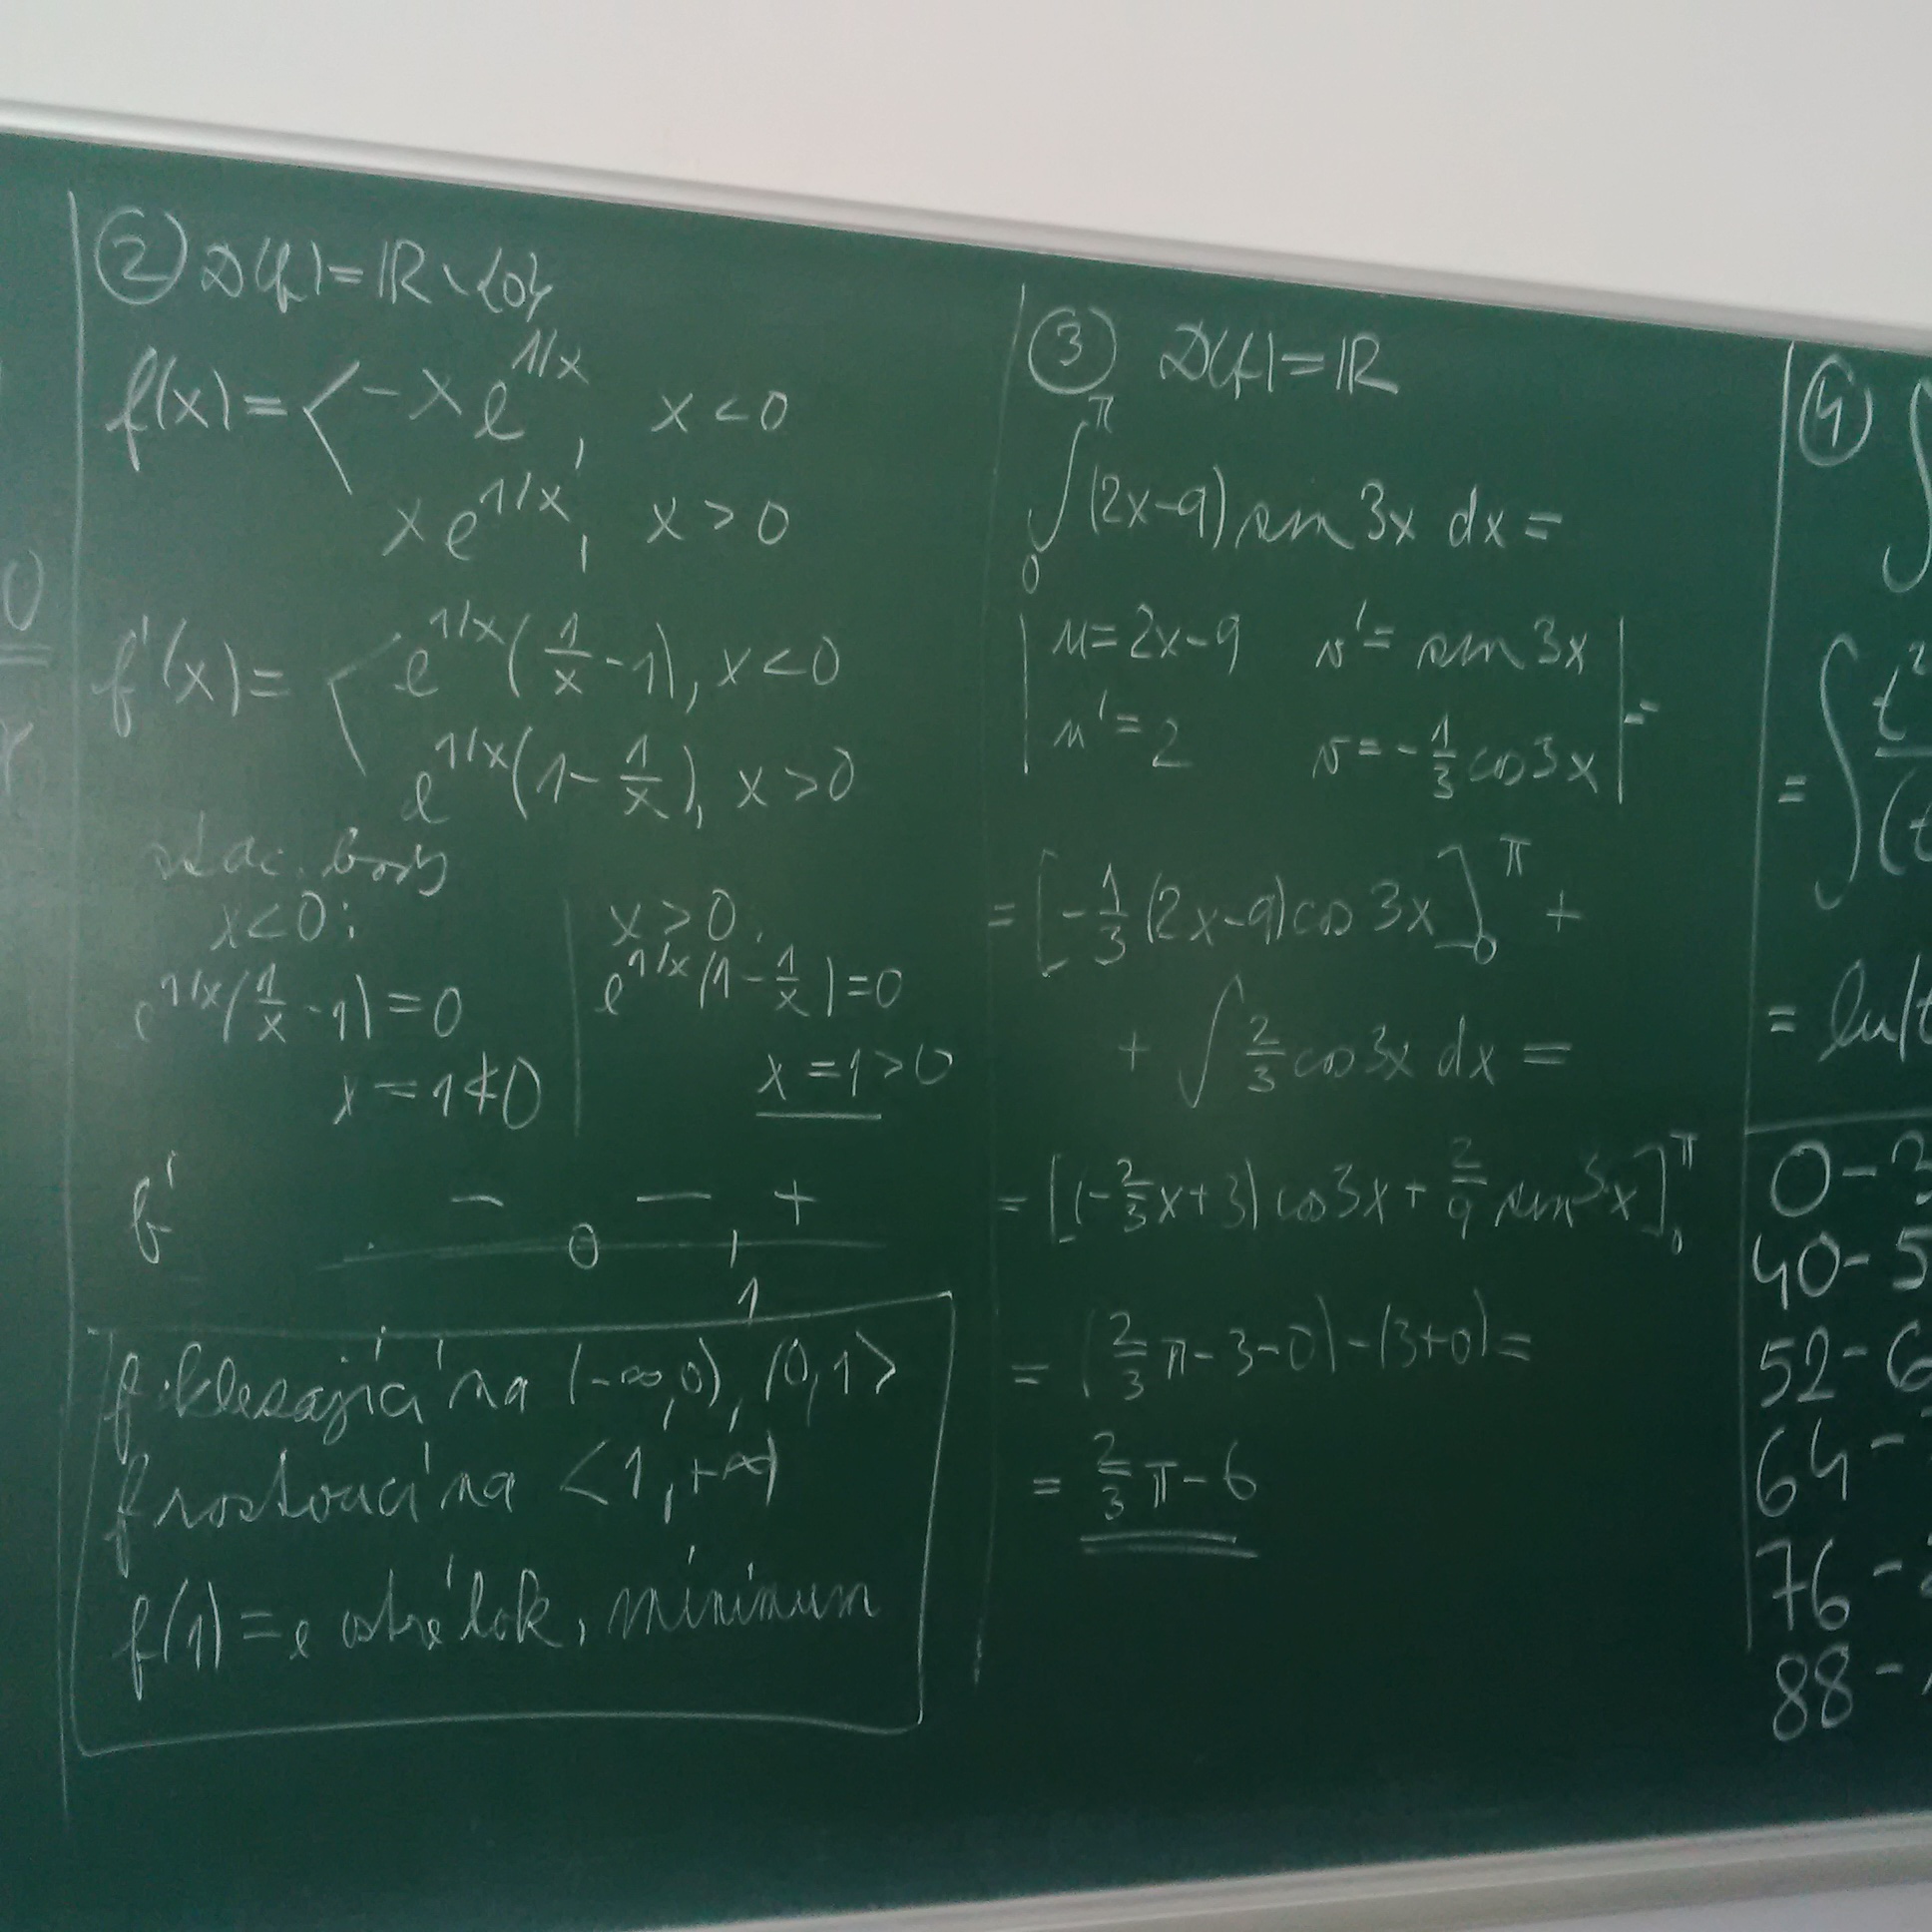 ② D(f) = ℝ \ {0}
f(x) = < -x e^{1/x}, x < 0
x e^{1/x}, x > 0
f'(x) = < e^{1/x} (1/x - 1), x < 0
e^{1/x} (1 - 1/x), x > 0
stac. body
x < 0:
e^{1/x} (1/x - 1) = 0
x = 1 ≮ 0
x > 0:
e^{1/x} (1 - 1/x) = 0
x = 1 > 0
f' - - +
0 1
f klesající na (-∞,0), (0,1>
f rostoucí na <1,+∞)
f(1) = e ostré lok. minimum
③ D(f) = ℝ
∫_0^π (2x-9) sin 3x dx =
| u = 2x-9 v' = sin 3x |
| u' = 2 v = -1/3 cos 3x | =
= [-1/3 (2x-9) cos 3x]_0^π +
+ ∫ 2/3 cos 3x dx =
= [(-2/3 x + 3) cos 3x + 2/9 sin 3x]_0^π
= (2/3 π - 3 - 0) - (3 + 0) =
= 2/3 π - 6
④ ∫
= ∫ t²
= ln|t
0 - 3
40 - 5
52 - 6
64 -
76 -
88 -